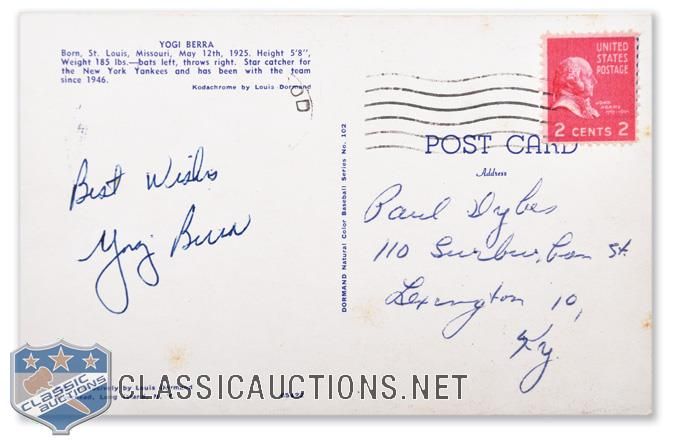 YOGI BERRA
Born, St. Louis, Missouri, May 12th, 1925. Height 5'8",
Weight 185 lbs.—bats left, throws right. Star catcher for
the New York Yankees and has been with the team
since 1946.
Kodachrome by Louis Dormand
Best Wishes
Yogi Berra
by Louis Dormand
DORMAND Natural Color Baseball Series No. 102
UNITED
STATES
POSTAGE
JOHN
ADAMS
2 CENTS 2
POST CARD
Address
Paul Dykes
110 Surburban st.
Lexington 10,
Ky.
CLASSIC
AUCTIONS
CLASSICAUCTIONS.NET